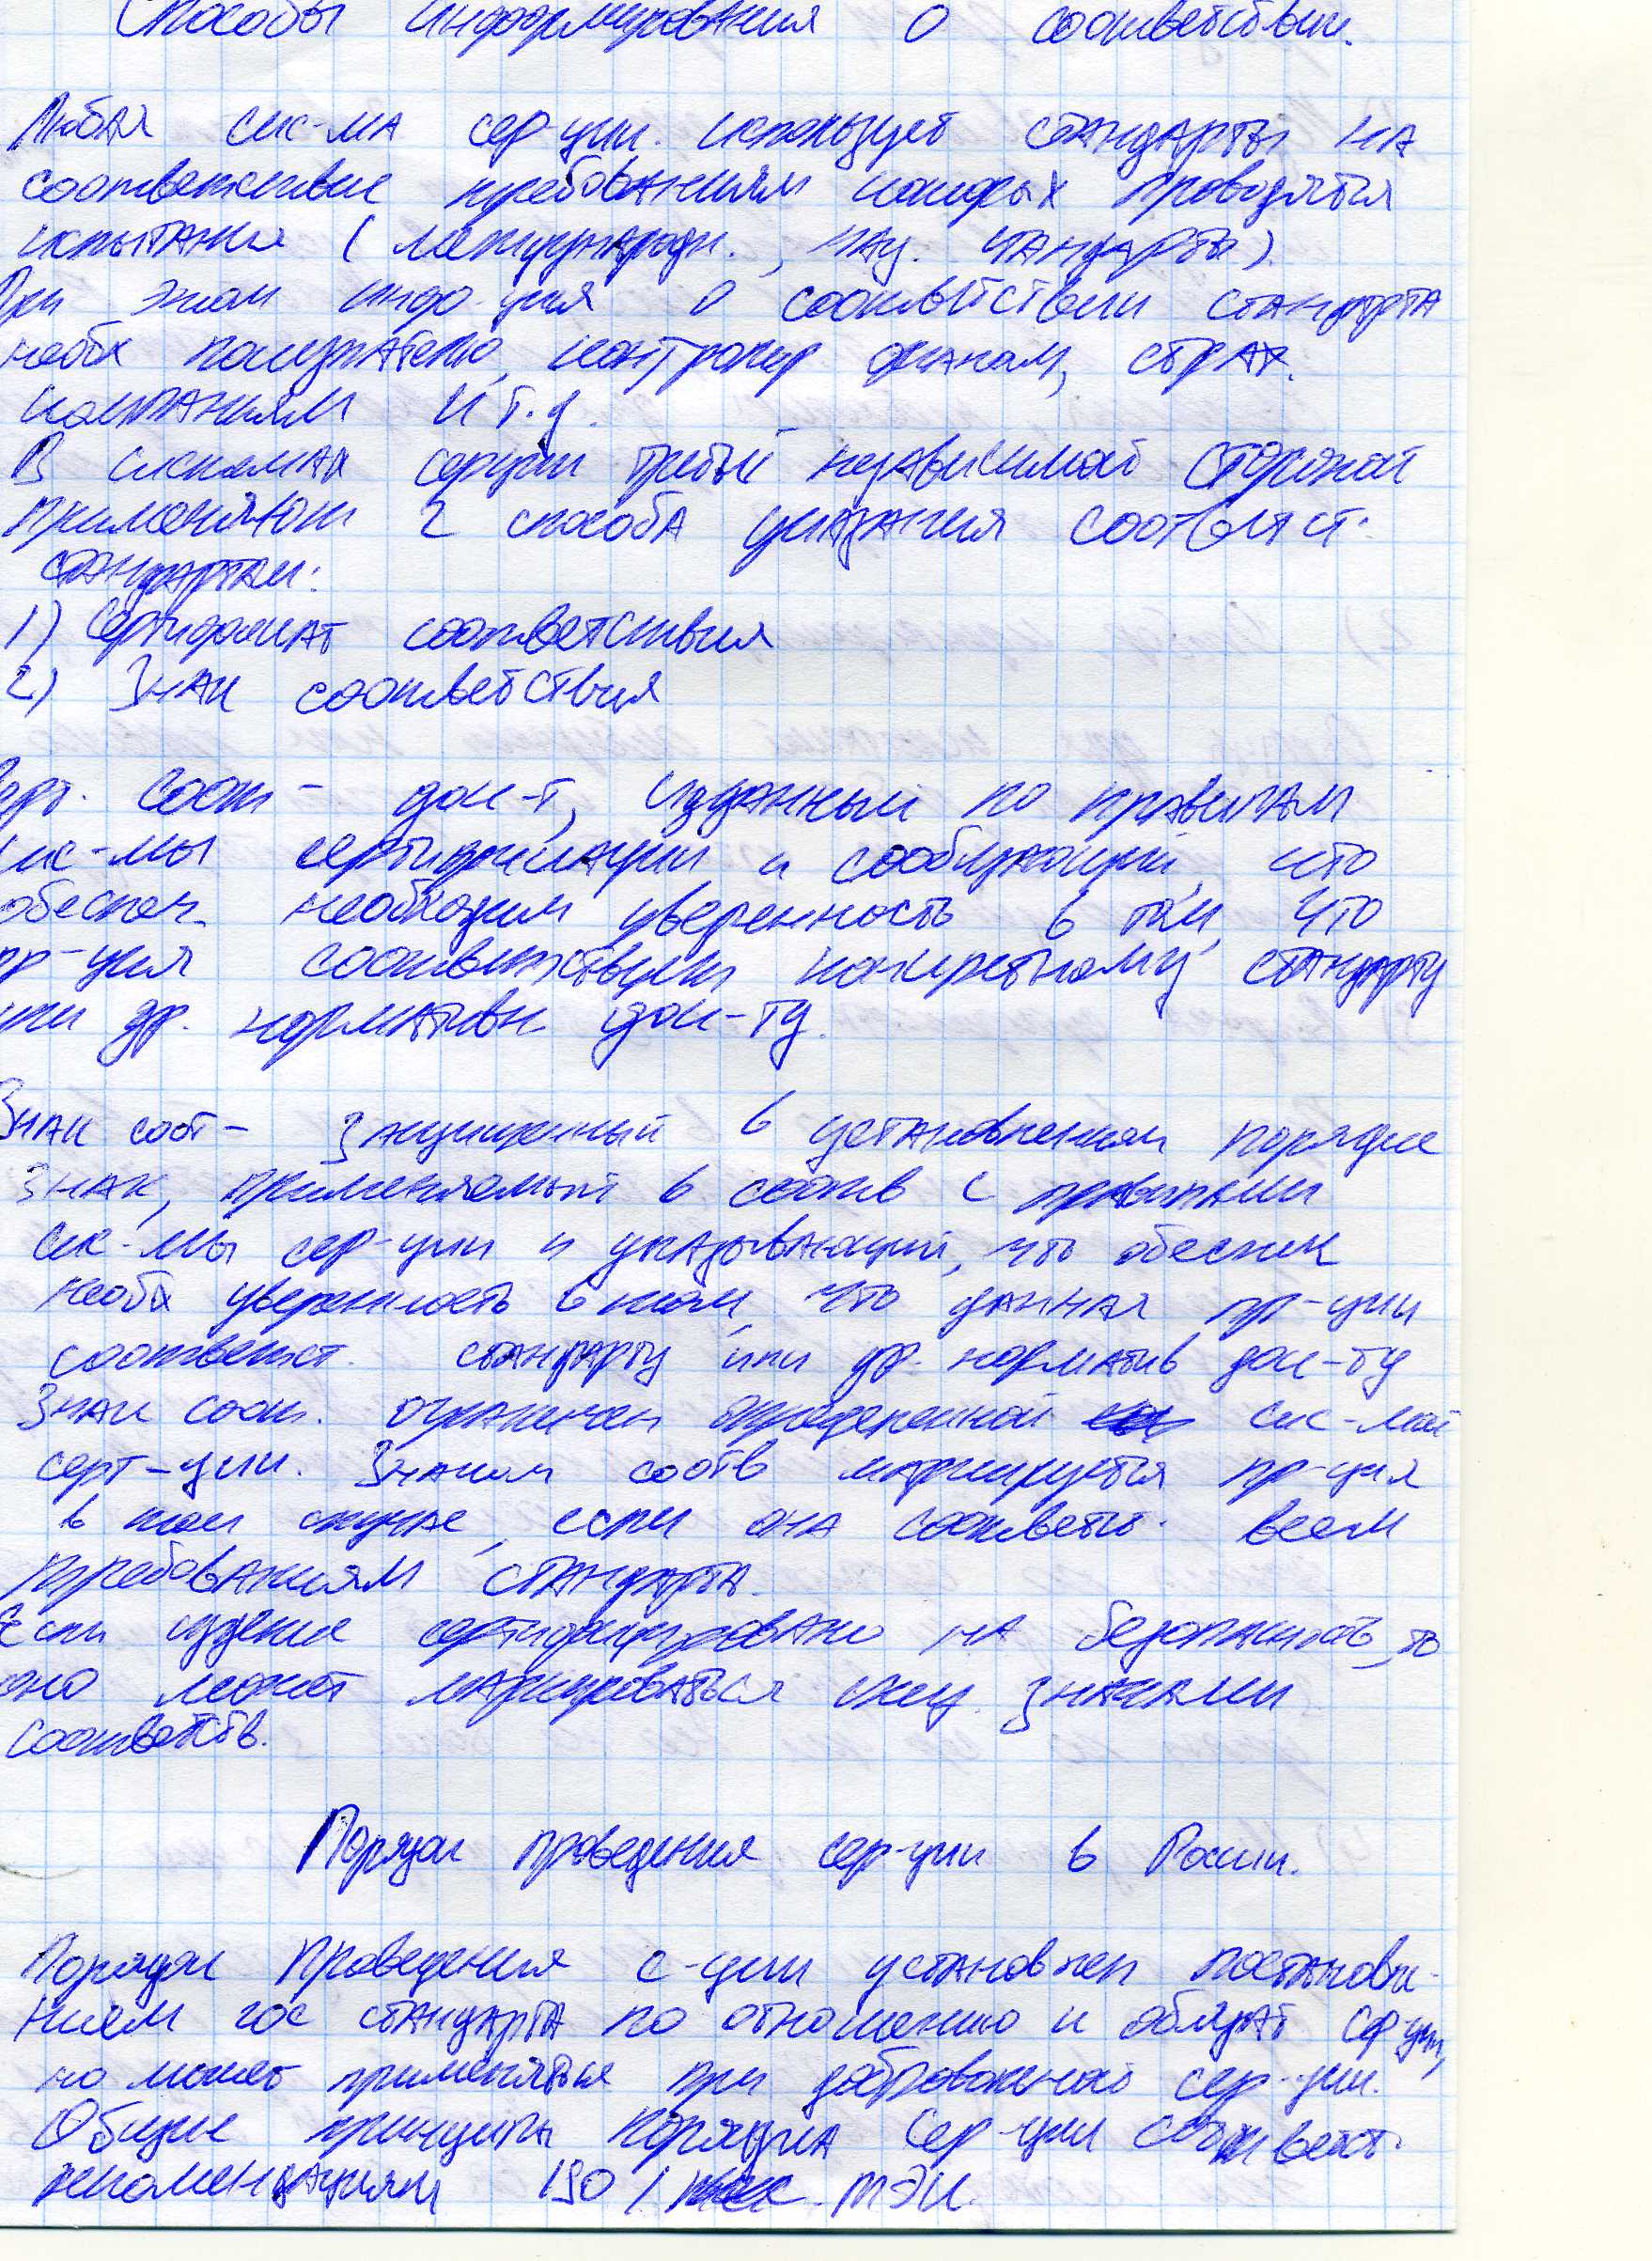 Способы информирования о соответствии.
Любая сис-ма сер-ции. использует стандарты на
соответствие требованиям которых проводятся
испытания (международн., нац. стандарты).
При этом инфо-ция о соответствии стандарта
необх покупателю, контролир органам, страх.
компаниям и т.д.
В системах серции третьей независимой стороной
применяют 2 способа указания соответст.
стандартам:
1) Сертификат соответствия
2) Знак соответствия
Серт. соот - док-т, изданный по правилам
сис-мы сертификации и сообщающий, что
обеспеч. необходим уверенность в том, что
пр-ция соответствует конкретному стандарту
или др. норматив док-ту.
Знак соот - защищенный в установленном порядке
знак, применяемый в соотв с правилами
сис-мы сер-ции и указывающий, что обеспеч
необх уверенность в том, что данная пр-ции
соответст. стандарту или др. норматив док-ту
Знак соот. ограничен определенной сис-мой
серт-ции. Знаком соотв маркируется пр-ция
в том случае, если она соответ. всем
требованиям стандарта.
Если изделие сертифицировано на безопасность, то
оно может маркироваться спец. знаками
соответств.
Порядок проведения сер-ции в России.
Порядок проведения с-ции установлен постановле-
нием гос стандарта по отношению к обязат сер-ции,
но может применяться при добровольной сер-ции.
Общие принципы порядка сер-ции соответст.
рекомендациям ISO / МЭК.